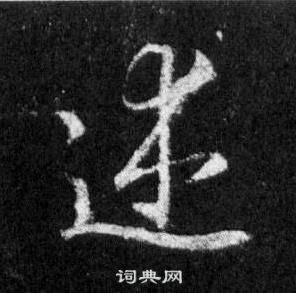 述
词典网